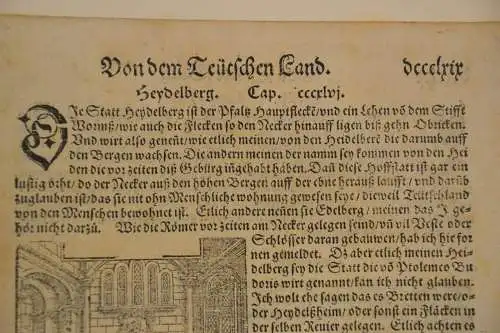 Von dem Teütschen Land. dcccclxix
Heydelberg. Cap. cccxlvj.
Die Statt Heydelberg ist der Pfaltz Hauptfleckẽ/vnd ein Lehen võ dem Stifft
Wormß/wie auch die Flecken so den Necker hinauff ligen biß gehn Obricken.
Vnd wirt also geneñt/wie etlich meinen/von den Heidelberẽ die darumb auff
den Bergen wachsen. Die andern meinen der namm sey kommen von den Hei
den die vor zeiten diß Gebürg inngehabt haben. Dañ diese Hoffstatt ist gar ein
lustig orht/do der Necker auß den hohen Bergen auff der ebne herauß laufft/vnd darüb
zuglauben ist/das sie nit ohn Menschliche wohnung gewesen seye/dieweil Teütschland
von den Menschen bewohnet ist. Etlich andere neñen sie Edelberg/meinen das J ge-
hör nicht darzů. Wie die Römer vor zeiten am Necker gelegen seind/vñ vil Veste oder
Schlösser daran gebauwen/hab ich hie for
nen gemeldet. Dz aber etlich meinen Hei-
delberg sey die Statt die võ Ptolemeo Bu
doris wirt genanten/kan ich nicht glauben.
Ich wolt ehe sagen das es Bretten were/o-
der Heydelßheim/oder sonst ein Fläcken in
der selben Reuier gelegen. Etlich achten es